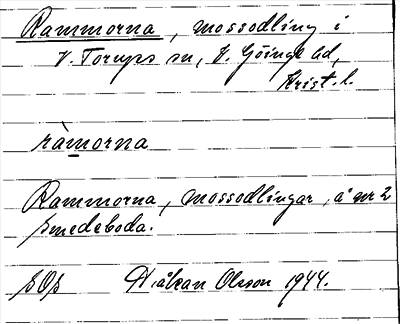 Rammorna, mossodling i
V. Torups sn, V. Göinge hd,
Krist. l.
ràmorna
Rammorna, mossodlingar, å nr 2
Smedeboda.
Håkan Olsson 1944.